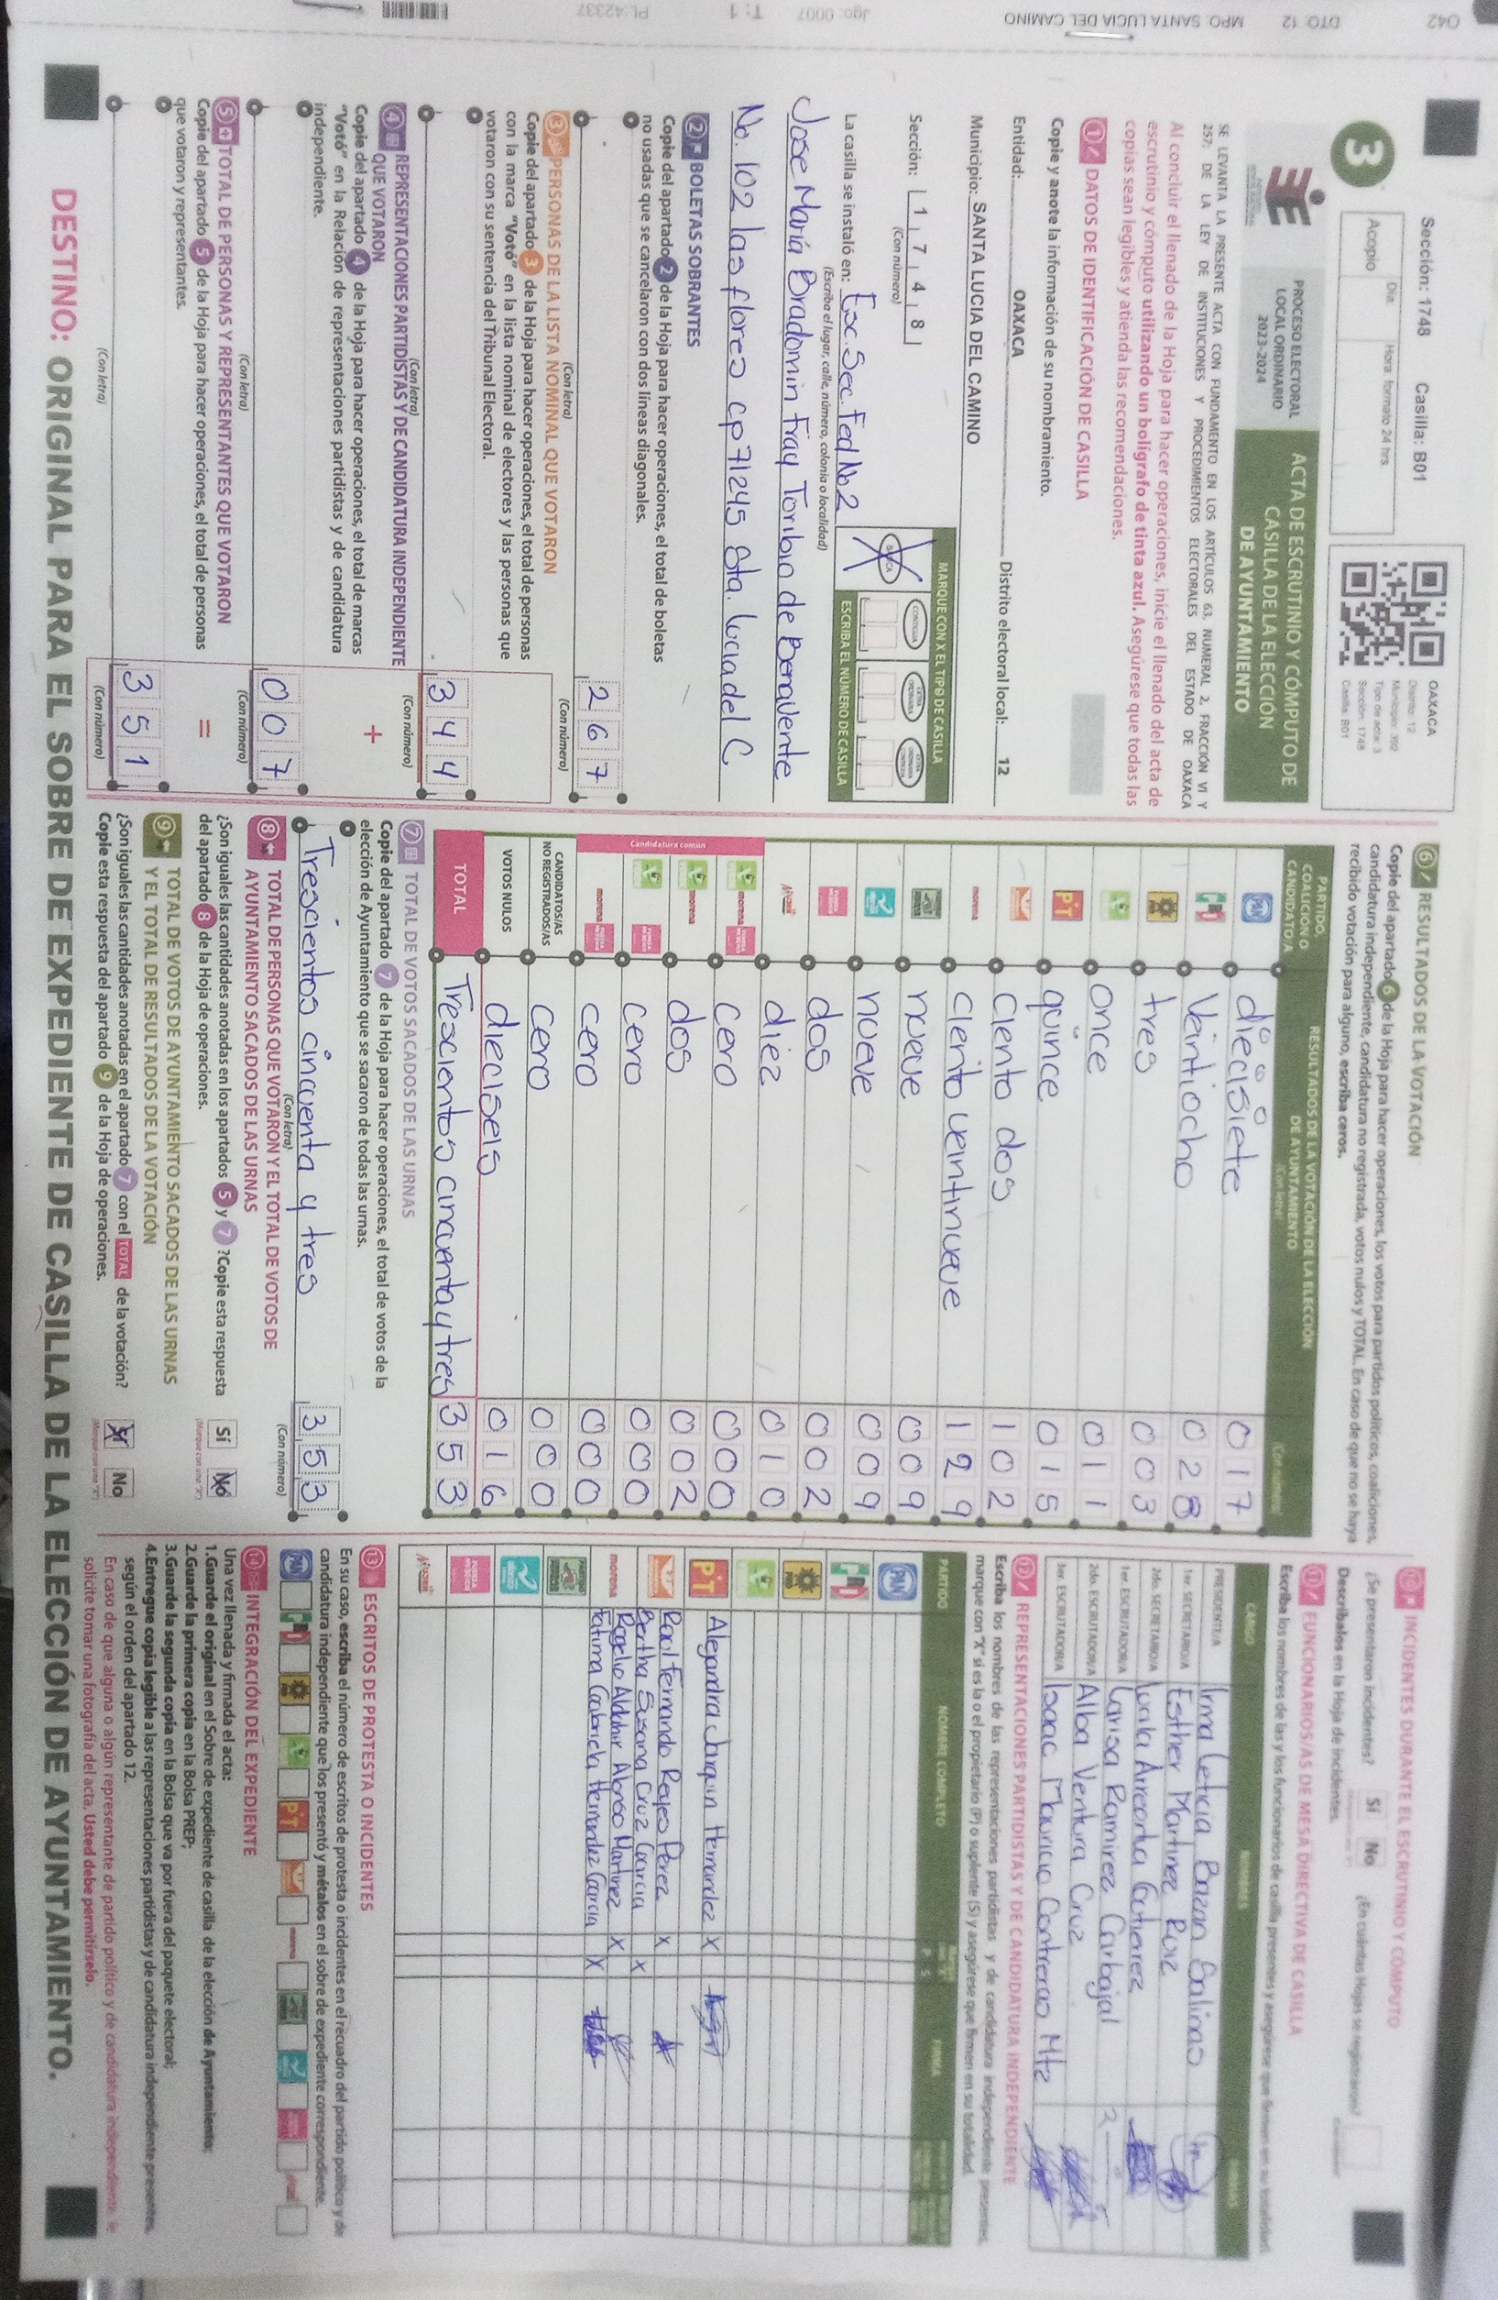 Sección: 1748 Casilla: B01
Día Hora: formato 24 hrs.
Acopio
OAXACA
Distrito: 12
Tipo de acta: 3
Sección: 1748
Casilla: B01
3
PROCESO ELECTORAL
LOCAL ORDINARIO
2023-2024
ACTA DE ESCRUTINIO Y CÓMPUTO DE
CASILLA DE LA ELECCIÓN
DE AYUNTAMIENTO
SE LEVANTA LA PRESENTE ACTA CON FUNDAMENTO EN LOS ARTÍCULOS 63, NUMERAL 2, FRACCIÓN VI Y
257; DE LA LEY DE INSTITUCIONES Y PROCEDIMIENTOS ELECTORALES DEL ESTADO DE OAXACA
Al concluir el llenado de la Hoja para hacer operaciones, inicie el llenado del acta de
escrutinio y cómputo utilizando un bolígrafo de tinta azul. Asegúrese que todas las
copias sean legibles y atienda las recomendaciones.
1 DATOS DE IDENTIFICACIÓN DE CASILLA
Copie y anote la información de su nombramiento.
Entidad: OAXACA Distrito electoral local: 12
Municipio: SANTA LUCIA DEL CAMINO
Sección: 1 7 4 8
(Con número)
MARQUE CON X EL TIPO DE CASILLA
BÁSICA CONTIGUA
ESCRIBA EL NÚMERO DE CASILLA
La casilla se instaló en: Esc. Sec. Fed No 2
(Escriba el lugar, calle, número, colonia o localidad)
Jose María Bradomin Fray Toribio de Benavente
No. 102 las flores cp 71245 Sta. Lucia del C
2 BOLETAS SOBRANTES
Copie del apartado 2 de la Hoja para hacer operaciones, el total de boletas
no usadas que se cancelaron con dos líneas diagonales.
267
(Con letra) (Con número)
3 PERSONAS DE LA LISTA NOMINAL QUE VOTARON
Copie del apartado 3 de la Hoja para hacer operaciones, el total de personas
con la marca "Votó" en la lista nominal de electores y las personas que
votaron con su sentencia del Tribunal Electoral.
344
(Con letra) (Con número)
4 REPRESENTACIONES PARTIDISTAS Y DE CANDIDATURA INDEPENDIENTE
QUE VOTARON
+
Copie del apartado 4 de la Hoja para hacer operaciones, el total de marcas
"Votó" en la Relación de representaciones partidistas y de candidatura
independiente.
007
(Con letra) (Con número)
5 TOTAL DE PERSONAS Y REPRESENTANTES QUE VOTARON
=
Copie del apartado 5 de la Hoja para hacer operaciones, el total de personas
que votaron y representantes.
351
(Con letra) (Con número)
6 RESULTADOS DE LA VOTACIÓN
Copie del apartado 6 de la Hoja para hacer operaciones, los votos para partidos políticos, coaliciones,
candidatura independiente, candidatura no registrada, votos nulos y TOTAL. En caso de que no se haya
recibido votación para alguno, escriba ceros.
PARTIDO,
COALICIÓN O
CANDIDATO/A
RESULTADOS DE LA VOTACIÓN DE LA ELECCIÓN
DE AYUNTAMIENTO
(Con letra) (Con número)
PAN diecisiete 017
PRI Veintiocho 028
PRD tres 003
once 011
PT quince 015
Ciento dos 102
morena Ciento veintinueve 129
nueve 009
nueve 009
dos 002
diez 010
Candidatura común
morena cero 000
morena dos 002
cero 000
morena cero 000
CANDIDATOS/AS
NO REGISTRADOS/AS cero 000
VOTOS NULOS dieciseis 016
TOTAL Trescientos cincuenta y tres 353
7 TOTAL DE VOTOS SACADOS DE LAS URNAS
Copie del apartado 7 de la Hoja para hacer operaciones, el total de votos de la
elección de Ayuntamiento que se sacaron de todas las urnas.
Trescientos cincuenta y tres 353
(Con letra) (Con número)
8 TOTAL DE PERSONAS QUE VOTARON Y EL TOTAL DE VOTOS DE
AYUNTAMIENTO SACADOS DE LAS URNAS
¿Son iguales las cantidades anotadas en los apartados 5 y 7 ?Copie esta respuesta
del apartado 8 de la Hoja de operaciones.
Sí No
9 TOTAL DE VOTOS DE AYUNTAMIENTO SACADOS DE LAS URNAS
Y EL TOTAL DE RESULTADOS DE LA VOTACIÓN
¿Son iguales las cantidades anotadas en el apartado 7 con el TOTAL de la votación?
Copie esta respuesta del apartado 9 de la Hoja de operaciones.
Sí No
10 INCIDENTES DURANTE EL ESCRUTINIO Y CÓMPUTO
¿Se presentaron incidentes? Sí No ¿En cuántas Hojas se registraron?
Descríbalos en la Hoja de incidentes.
11 FUNCIONARIOS/AS DE MESA DIRECTIVA DE CASILLA
Escriba los nombres de las y los funcionarios de casilla presentes y asegúrese que firmen en su totalidad.
CARGO NOMBRES FIRMAS
PRESIDENTE/A Irma Leticia Bazan Salinas
1er. SECRETARIO/A Esther Martinez Ruiz
2do. SECRETARIO/A Lucila Arreortua Gutierrez
1er. ESCRUTADOR/A Larisa Ramirez Carbajal
2do. ESCRUTADOR/A Alba Ventura Cruz
3er. ESCRUTADOR/A Isaac Mauricio Contreras Mtz
12 REPRESENTACIONES PARTIDISTAS Y DE CANDIDATURA INDEPENDIENTE
Escriba los nombres de las representaciones partidistas y de candidatura independiente presentes,
marque con "X" si es la o el propietario (P) o suplente (S) y asegúrese que firmen en su totalidad.
PARTIDO NOMBRE COMPLETO P S FIRMA
PAN
PRI
PRD
PT Alejandra Jarquin Hernandez X
Raul Fernando Reyes Pérez X
Bertha Susana Cruz Garcia X
morena Rogelio Aldahir Alonso Martinez X
Fatima Gabriela Hernandez Garcia X
13 ESCRITOS DE PROTESTA O INCIDENTES
En su caso, escriba el número de escritos de protesta o incidentes en el recuadro del partido político y de
candidatura independiente que los presentó y métalos en el sobre de expediente correspondiente.
PAN PRI PRD PT morena
14 INTEGRACIÓN DEL EXPEDIENTE
Una vez llenada y firmada el acta:
1.Guarde el original en el Sobre de expediente de casilla de la elección de Ayuntamiento;
2.Guarde la primera copia en la Bolsa PREP;
3.Guarde la segunda copia en la Bolsa que va por fuera del paquete electoral;
4.Entregue copia legible a las representaciones partidistas y de candidatura independiente presentes,
según el orden del apartado 12.
En caso de que alguna o algún representante de partido político y de candidatura independiente, le
solicite tomar una fotografía del acta, Usted debe permitírselo.
DESTINO: ORIGINAL PARA EL SOBRE DE EXPEDIENTE DE CASILLA DE LA ELECCIÓN DE AYUNTAMIENTO.
042 DTO 12 MPO SANTA LUCIA DEL CAMINO Jgo: 0007 T: 1 PL:42337